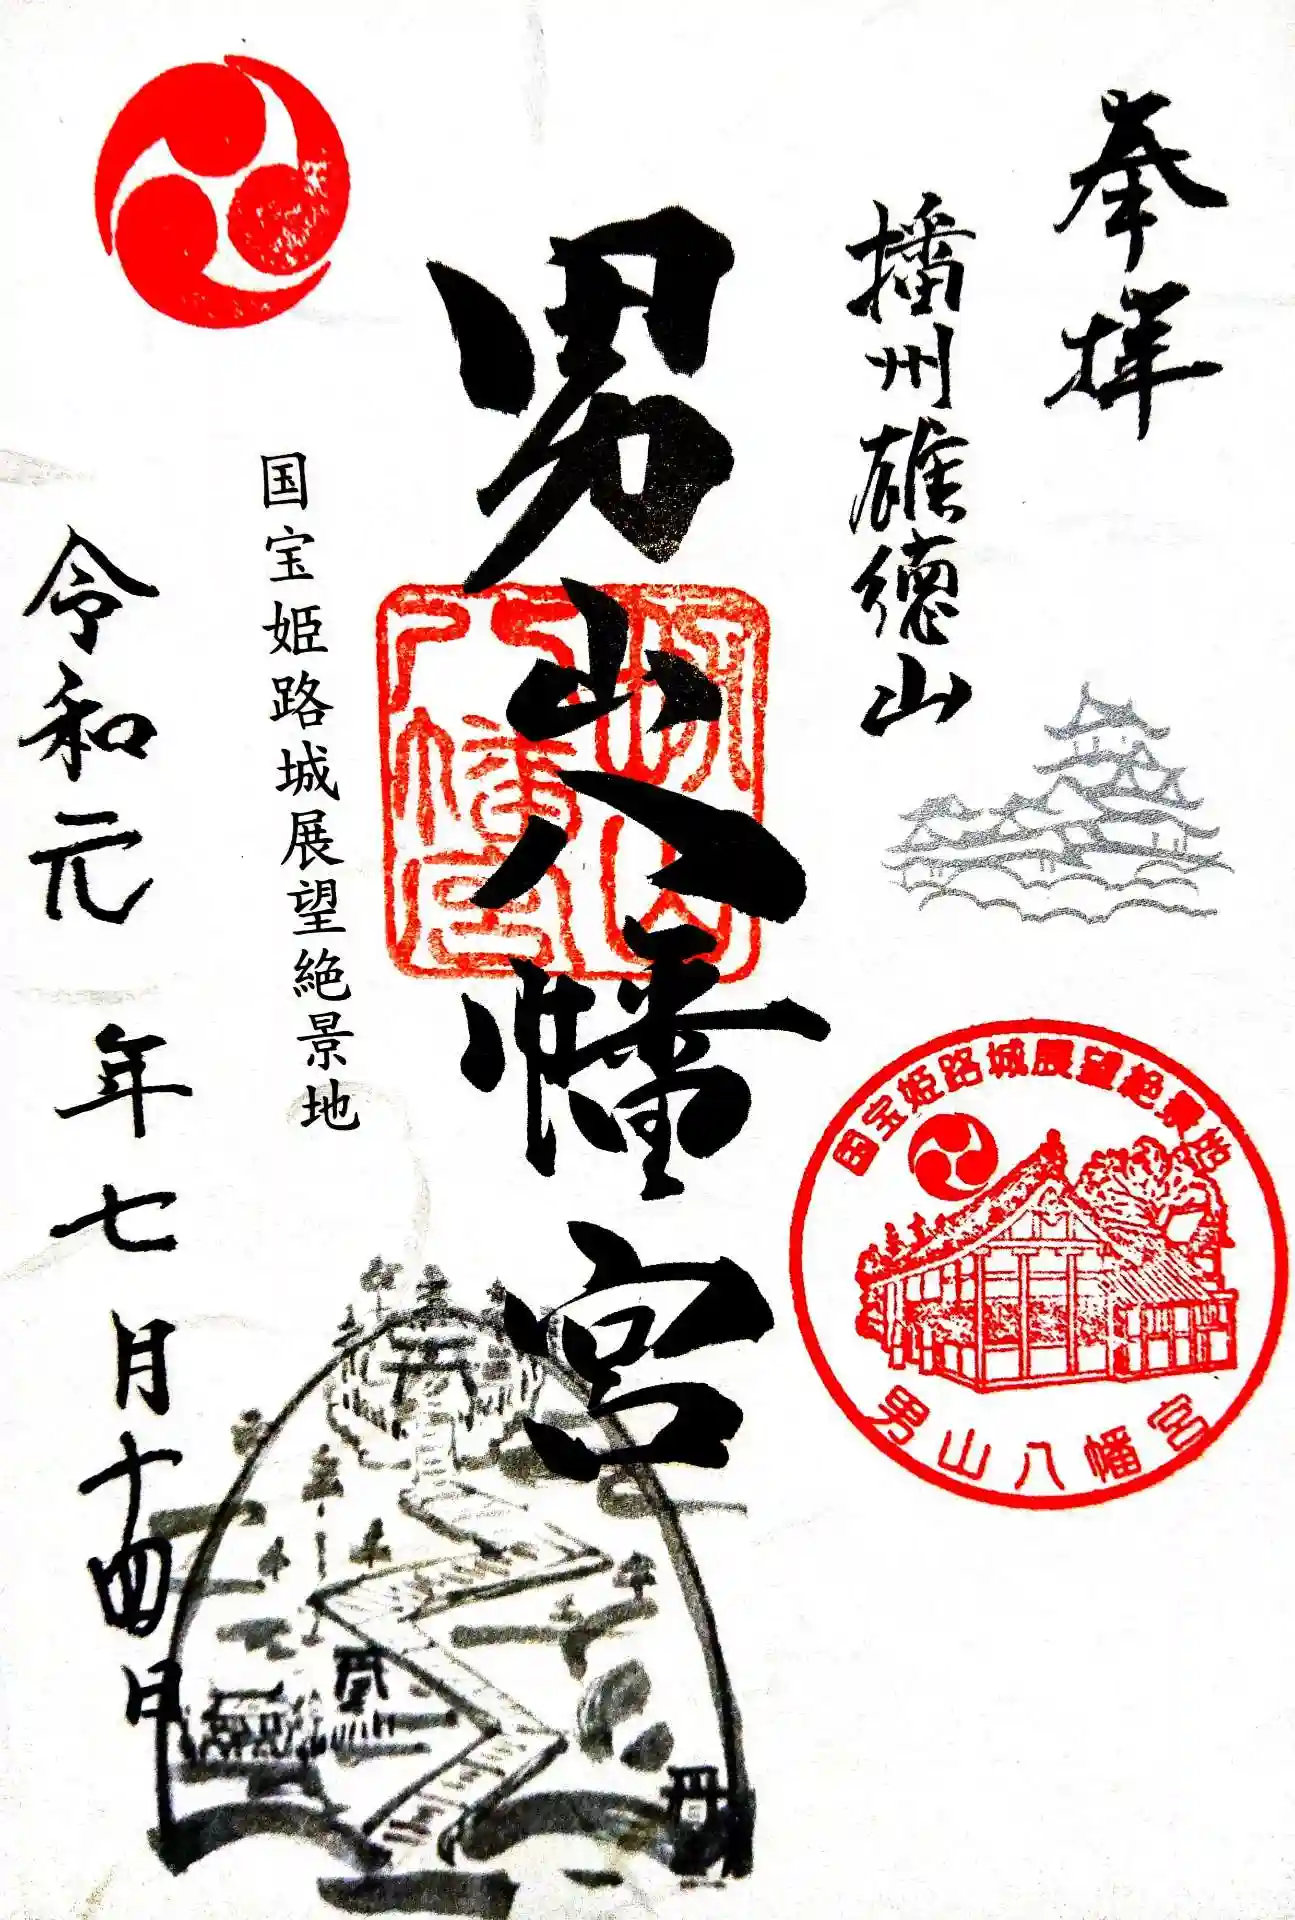 奉拝
播州雄徳山
男山八幡宮
国宝姫路城展望絶景地
令和元年七月十四日
国宝姫路城展望絶景
男山八幡宮